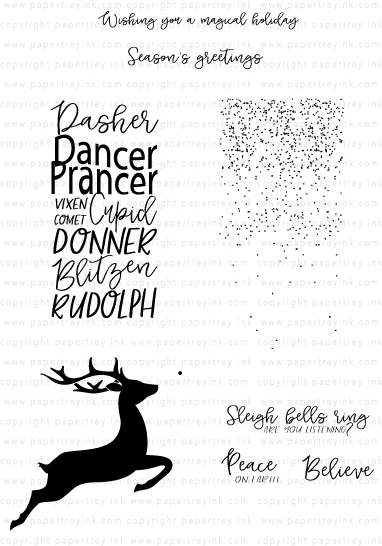 Wishing you a magical holiday
Season's greetings
Dasher
Dancer
Prancer
VIXEN
COMET Cupid
DONNER
Blitzen
RUDOLPH
Sleigh bells ring
ARE YOU LISTENING?
Peace
ON EARTH
Believe
copyright papertrey ink www.papertreyink.com